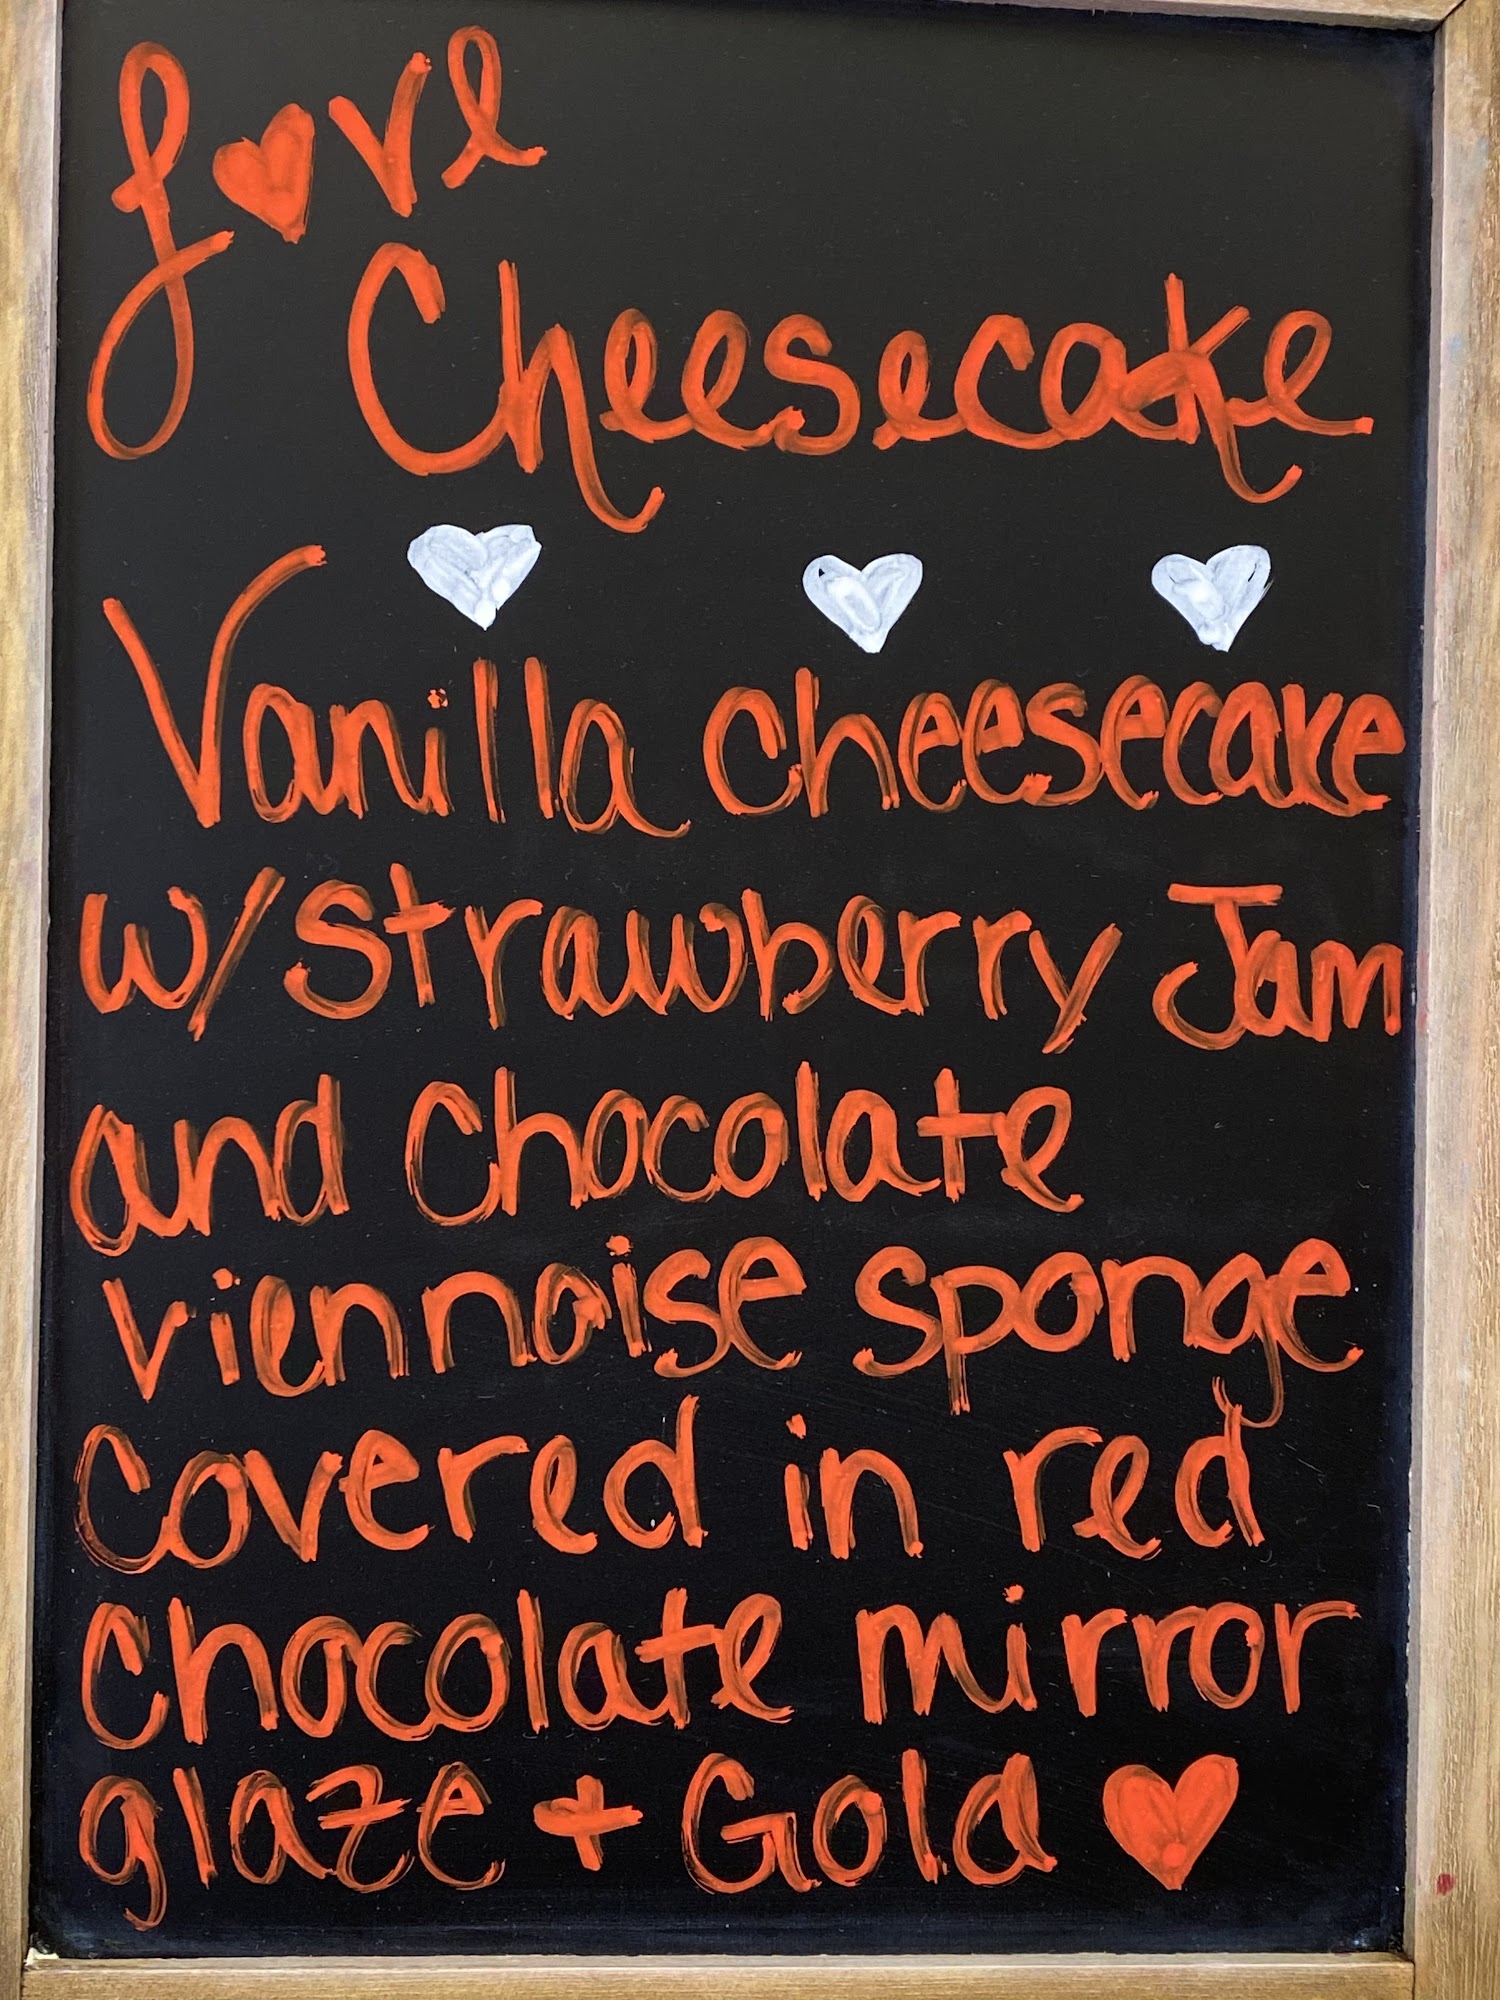 Love
Cheesecake
Vanilla cheesecake
w/strawberry Jam
and chocolate
viennaise sponge
Covered in red
chocolate mirror
glaze + Gold